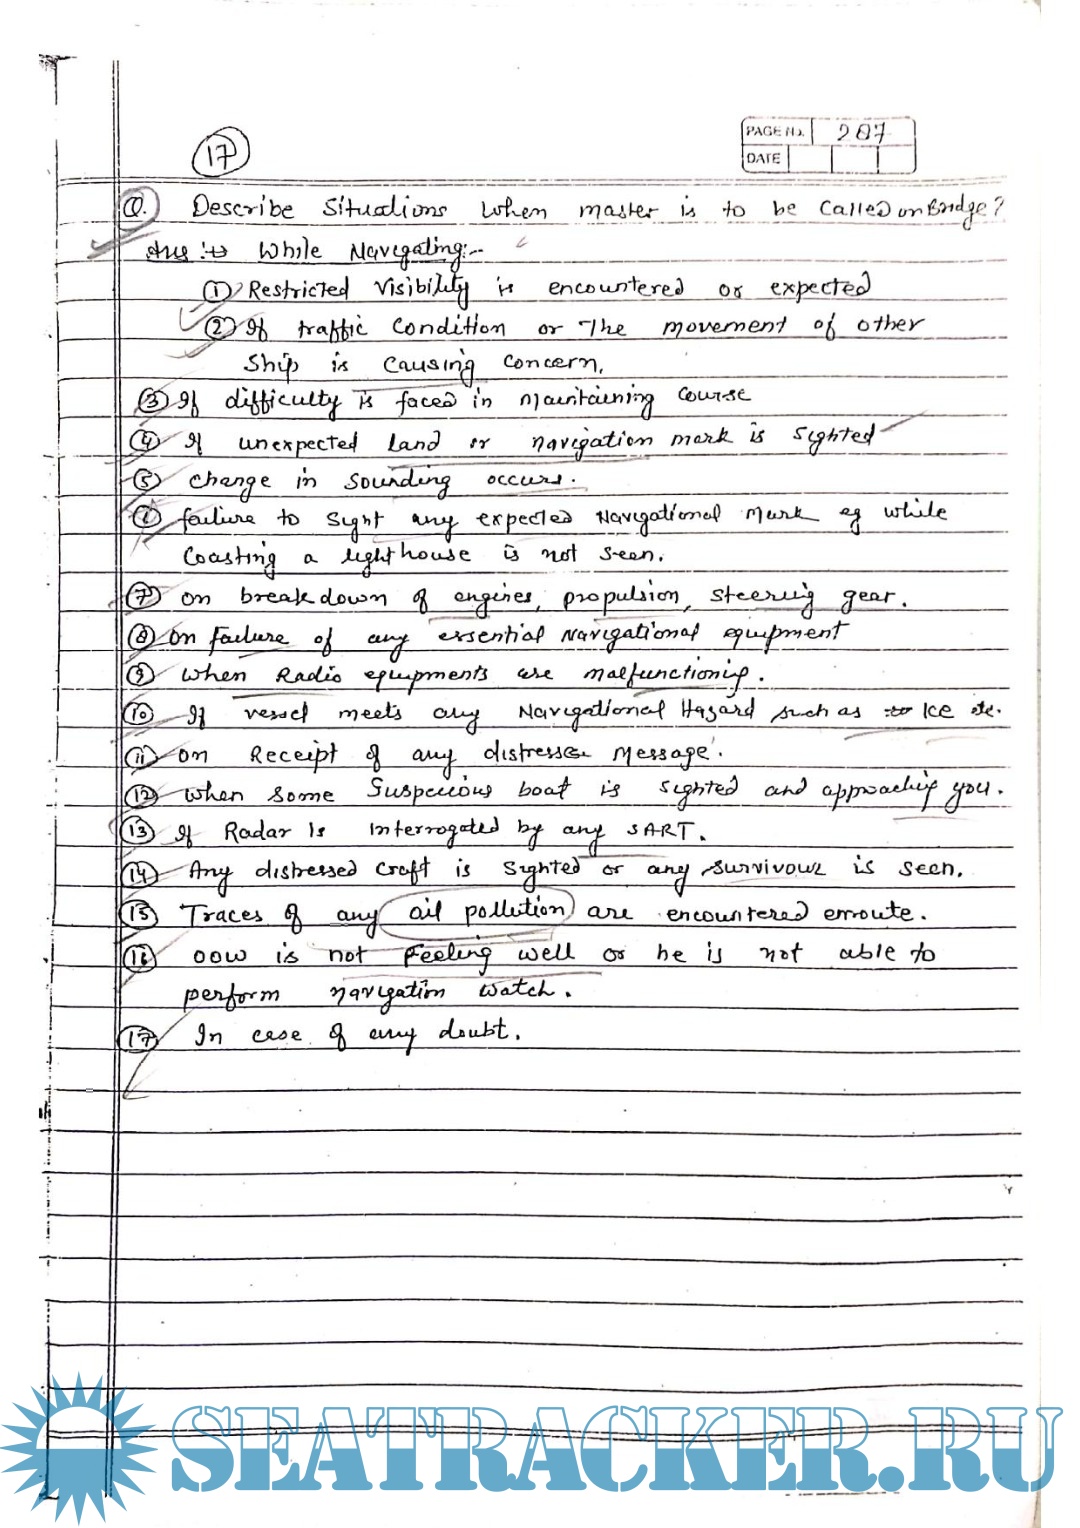 17
PAGE No. 287
DATE
Q. Describe Situations when master is to be Called on Bridge?
Ans :→ While Navigating:-
① Restricted Visibility is encountered or expected
② If traffic Condition or The movement of other
Ship is Causing Concern.
③ If difficulty is faced in maintaining Course
④ If unexpected Land or navigation mark is Sighted
⑤ change in Sounding occurs.
⑥ failure to Sight any expected Navigational Mark eg while
Coasting a lighthouse is not seen.
⑦ on breakdown of engines, propulsion, Steering gear.
⑧ on failure of any essential Navigational equipment
⑨ when Radio equipments are malfunctioning.
⑩ If vessel meets any Navigational Hazard such as ICE etc.
⑪ on Receipt of any distress Message.
⑫ when some Suspecious boat is sighted and approaching you.
⑬ If Radar Is Interrogated by any SART.
⑭ Any distressed craft is Sighted or any survivour is seen.
⑮ Traces of any oil pollution are encountered enroute.
⑯ OOW is not Feeling well or he is not able to
perform navigation watch.
⑰ In case of any doubt.
SEATRACKER.RU